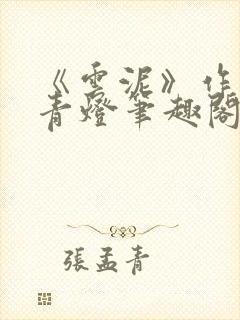 《雲泥》作
青燈筆趣閣
張孟青